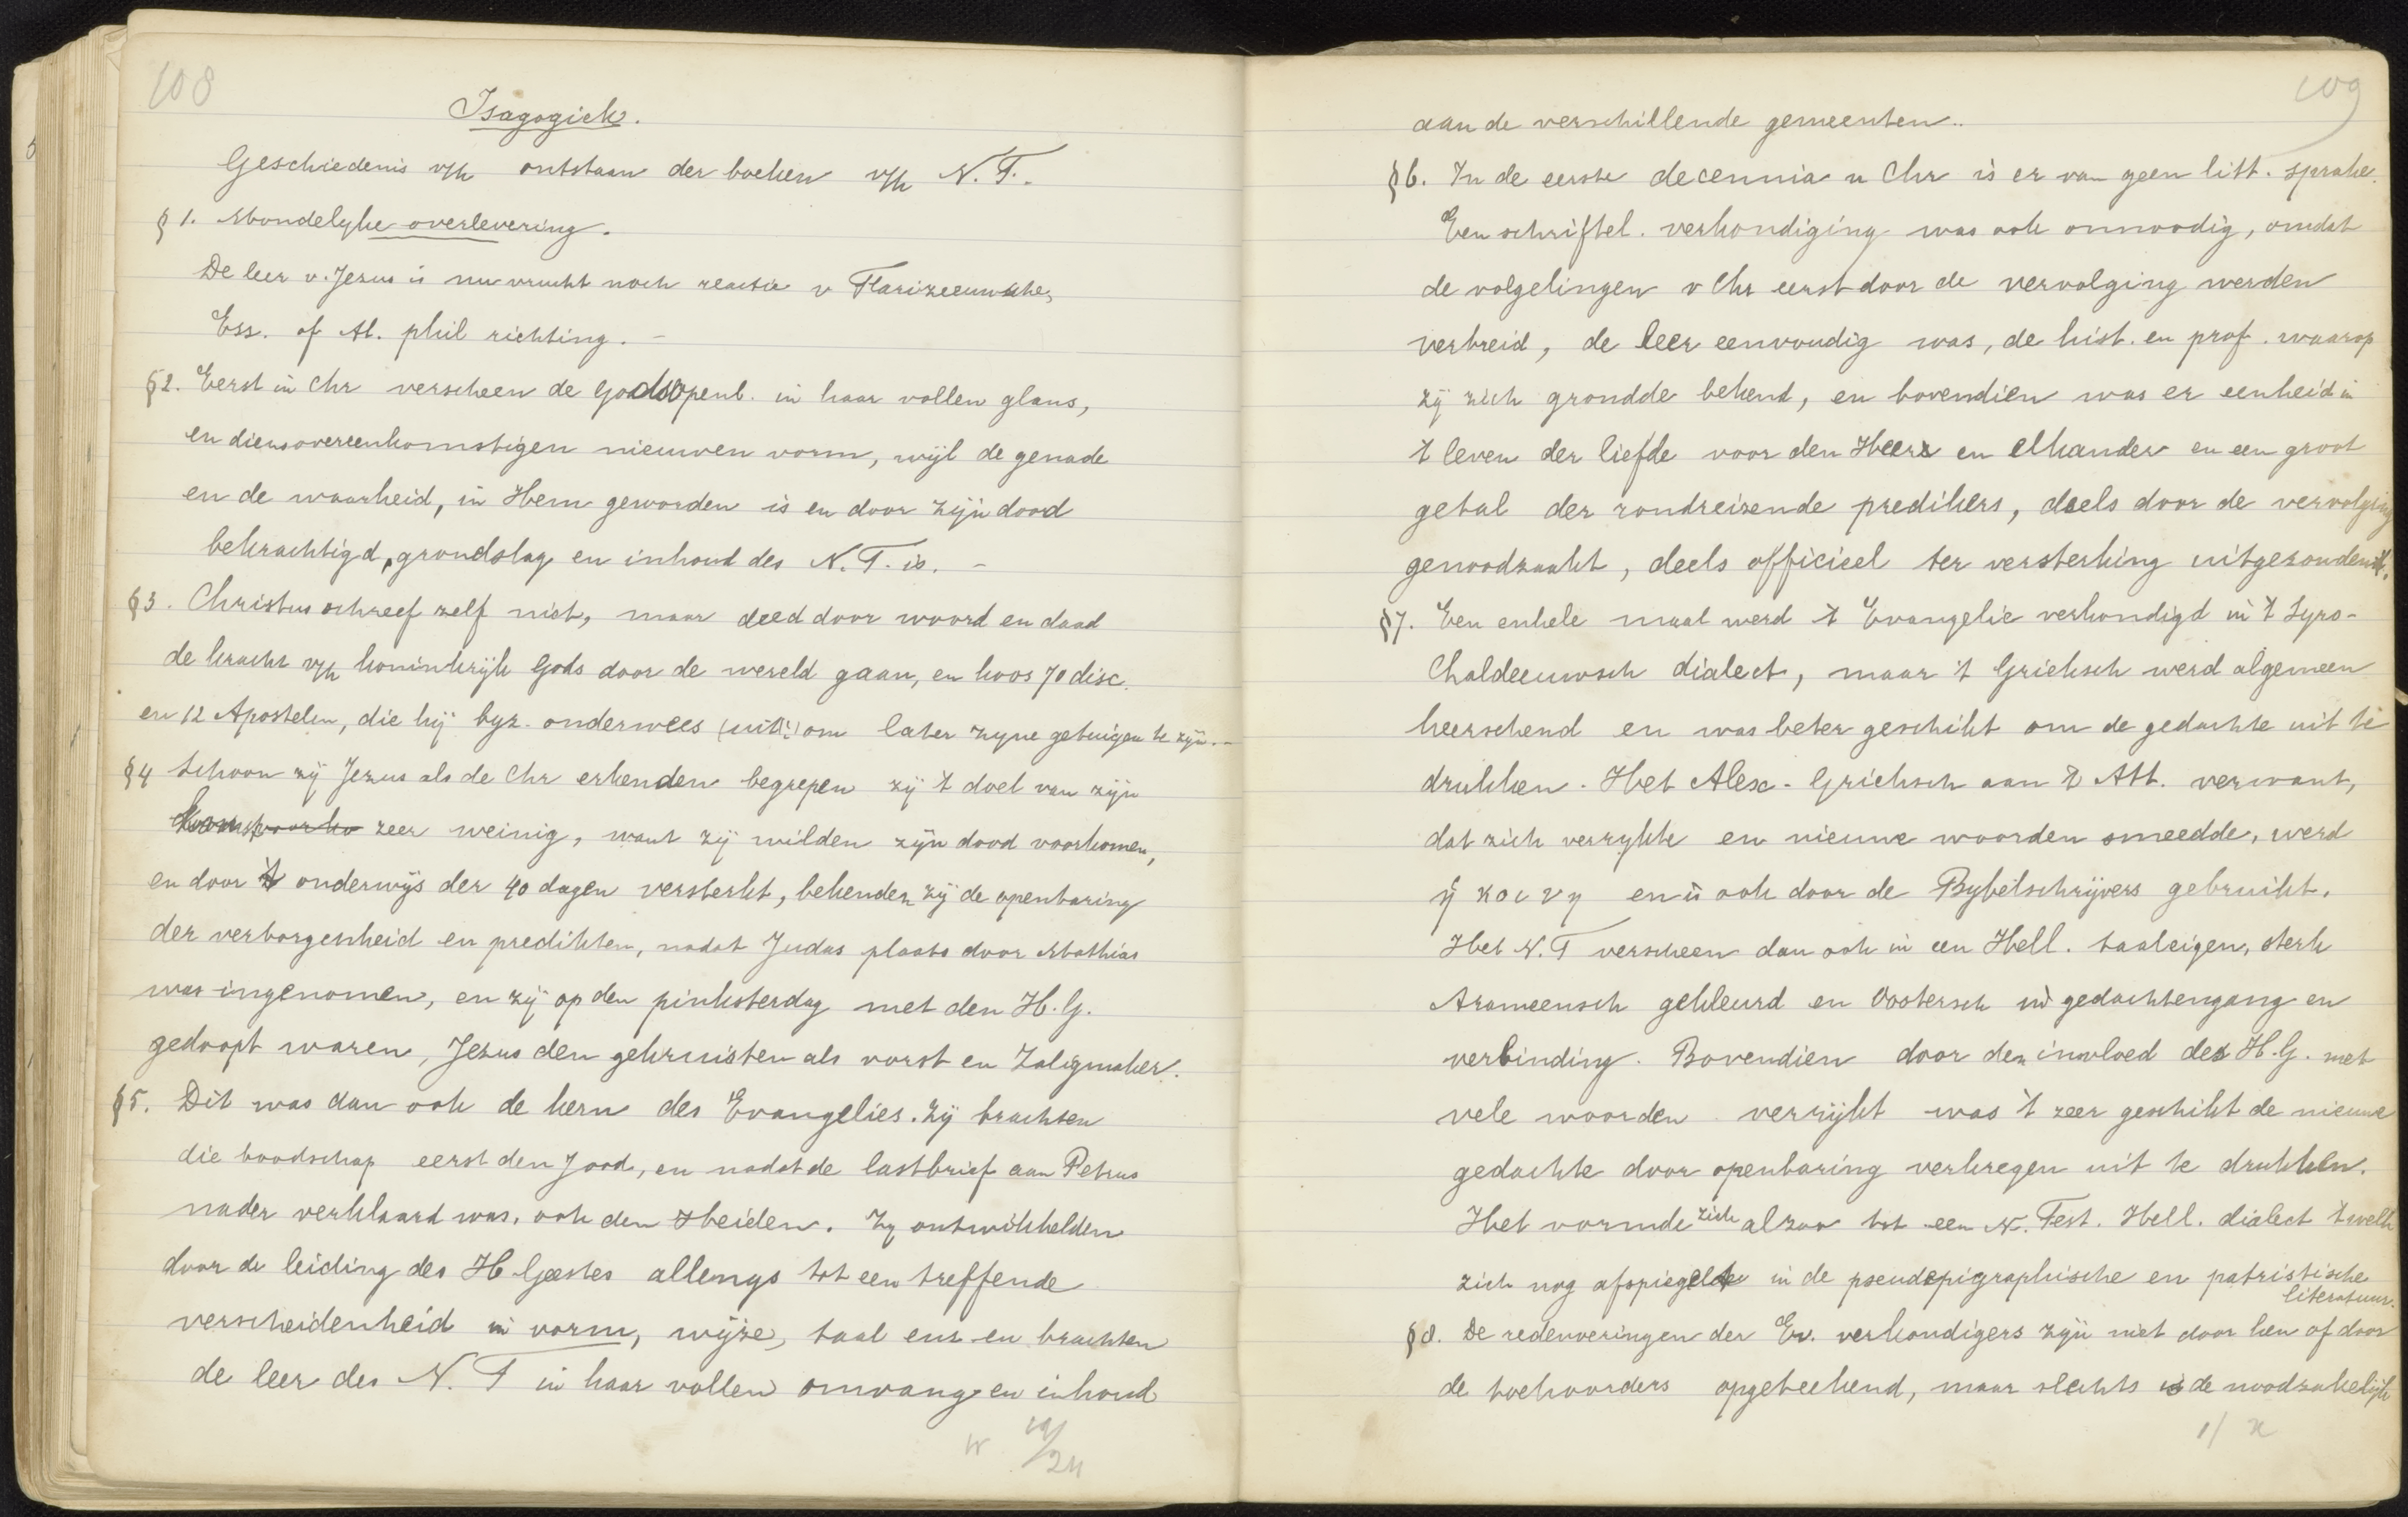 108
Isagogiek.
Geschiedenis v/h ontstaan der boeken v/h N. T.
§ 1. Mondelyke overlevering.
De leer v. Jezus is nu vrucht noch reactie v Farizeeuwsche,
Ess. of Al. phil richting. -
§2. Eerst in Chr verscheen de Godsopenb. in haar vollen glans,
en diensovereenkomstigen nieuwen vorm, wijl de genade
en de waarheid, in Hem geworden is en door zijn dood
bekrachtigd, grondslag en inhoud des N. T. is. -
§3. Christus schreef zelf niet, maar deed door woord en daad
de kracht v/h koninkrijk Gods door de wereld gaan, en koos 70 disc.
en 12 Apostelen, die hij byz. onderwees om later zyne getuigen te zijn. -
§4 Schoon zij Jezus als de Chr erkenden begrepen zij 't doel van zijn
zeer weinig, want zij wilden zijn dood voorkomen,
en door 't onderwijs der 40 dagen versterkt, bekenden zij de openbaring
der verborgenheid en predikten, nadat Judas plaats door Mathias
was ingenomen, en zij op den pinksterdag met den H. G.
gedoopt waren, Jezus den gekruisten als vorst en Zaligmaker.
§5. Dit was dan ook de kern des Evangelies. Zij brachten
die boodschap eerst den Jood, en nadat de lastbrief aan Petrus
nader verklaard was, ook den Heiden. Zy ontwikkelden
door de leiding des H Geestes allengs tot een treffende
verscheidenheid in vorm, wijze, taal enz en brachten
de leer des N. T in haar vollen omvang en inhoud
109
aan de verschillende gemeenten..
§6. In de eerste decennia n Chr is er van geen litt. sprake.
Een schriftel. verkondiging was ook onnoodig, omdat
de volgelingen v Chr eerst door de vervolging werden
verbreid, de leer eenvoudig was, de hist. en prof. waarop
zij zich grondde bekend, en bovendien was er eenheid in
't leven der liefde voor den Heere en elkander en een groot
getal der rondreizende predikers, deels door de vervolging
genoodzaakt, deels officieel ter versterking uitgezonden.
§7. Een enkele maal werd 't Evangelie verkondigd in 't Syro-
Chaldeeuwsch dialect, maar 't Grieksch werd algemeen
heerschend en was beter geschikt om de gedachte uit te
drukken. Het Alex-Grieksch aan 't Att. verwant,
dat zich verrykte en nieuwe woorden smeedde, werd
ἡ κοινη en is ook door de Bybelschrijvers gebruikt.
Het N. T verscheen dan ook in een Hell. taaleigen, sterk
Arameensch gekleurd en Oostersch in gedachtengang en
verbinding. Bovendien door den invloed des H. G. met
vele woorden verrijkt was 't zeer geschikt de nieuwe
gedachte door openbaring verkregen uit te drukken.
Het vormde zich alzoo tot een N. Test. Hell. dialect 't welk
zich nog afspiegelde in de pseudepigraphische en patristische
literatuur.
§8. De redevoeringen der Ev. verkondigers zijn niet door hen of door
de toehoorders opgeteekend, maar slechts de noodzakelijk